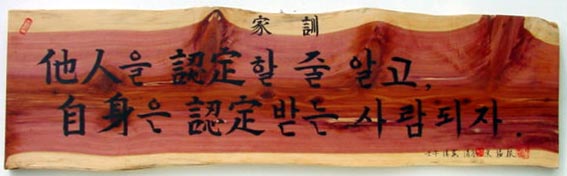 家訓
他人을 認定할 줄 알고,
自身은 認定받는 사람되자.